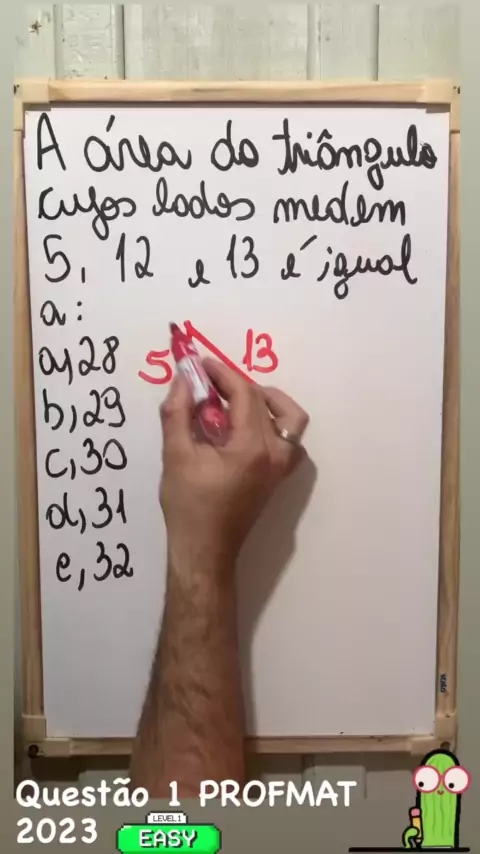 A área do triângulo
cujos lados medem
5, 12 e 13 é igual
a:
a, 28
b, 29
c, 30
d, 31
e, 32
5
13
Questão 1 PROFMAT
2023
LEVEL 1
EASY